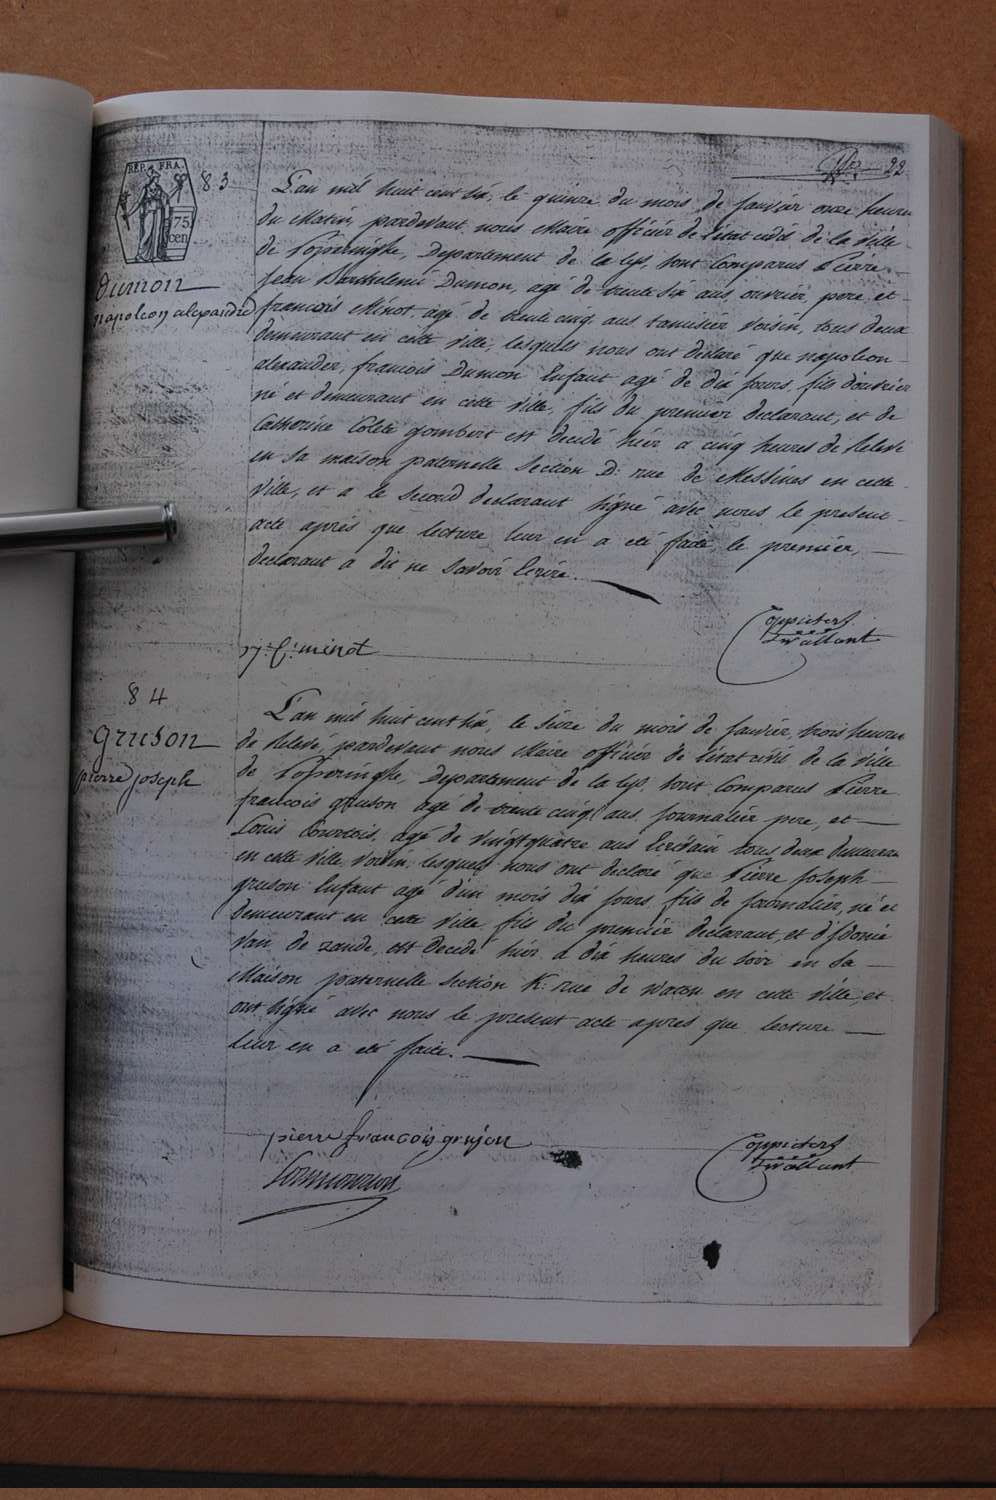 22
REP. FRA.
75
cen
83
Dumon
napoleon alexandre
L'an mil huit cent six, le quinze du mois de janvier onze heures
du Matin, pardevant nous Maire officier de l'état civil de la Ville
de Poperinghe, Departement de la Lys, sont Comparus Pierre
Jean Barthelemi Dumon, agé de trente six ans, ouvrier, pere, et
francois Minot, agé de trente cinq ans tamisier Voisin, tous deux
demeurant en cette ville, lesquels nous ont déclaré que napoleon
alexander, francois Dumon Enfant agé de dix jours, fils d'ouvrier
né et demeurant en cette Ville, fils du premier declarant, et de
Catherine Colete Gombert est decidé hier a cinq heures de Relevé
en sa maison paternelle Section D: rue de Messines en cette
Ville, et a le second declarant signé avec nous le present
acte aprés que lecture leur en a eté faite, le premier,
declarant a dit ne savoir Ecrire.
f: minot
84
gruson
pierre joseph
L'an mil huit cent six, le seize du mois de janvier, trois heures
de Relevé, pardevant nous Maire officier de l'état civil de la Ville
de Poperinghe, Departement de la Lys, sont Comparus Pierre
francois gruson agé de trente cinq ans, Journalier pere, et
Louis Courtois, agé de vingt quatre ans Ecrivain tous deux demeurant
en cette Ville Voisin, lesquels nous ont declaré que Pierre Joseph
gruson Enfant agé d'un mois dix jours, fils de journalier, né et
demeurant en cette Ville, fils du premier declarant, et d'Idonie
Van de zande, est Decidé hier a dix heures du soir en sa
Maison paternelle Section K: rue de Watou en cette Ville, et
ont signé avec nous le present acte apres que lecture
leur en a eté faite.
pierre francois gruson